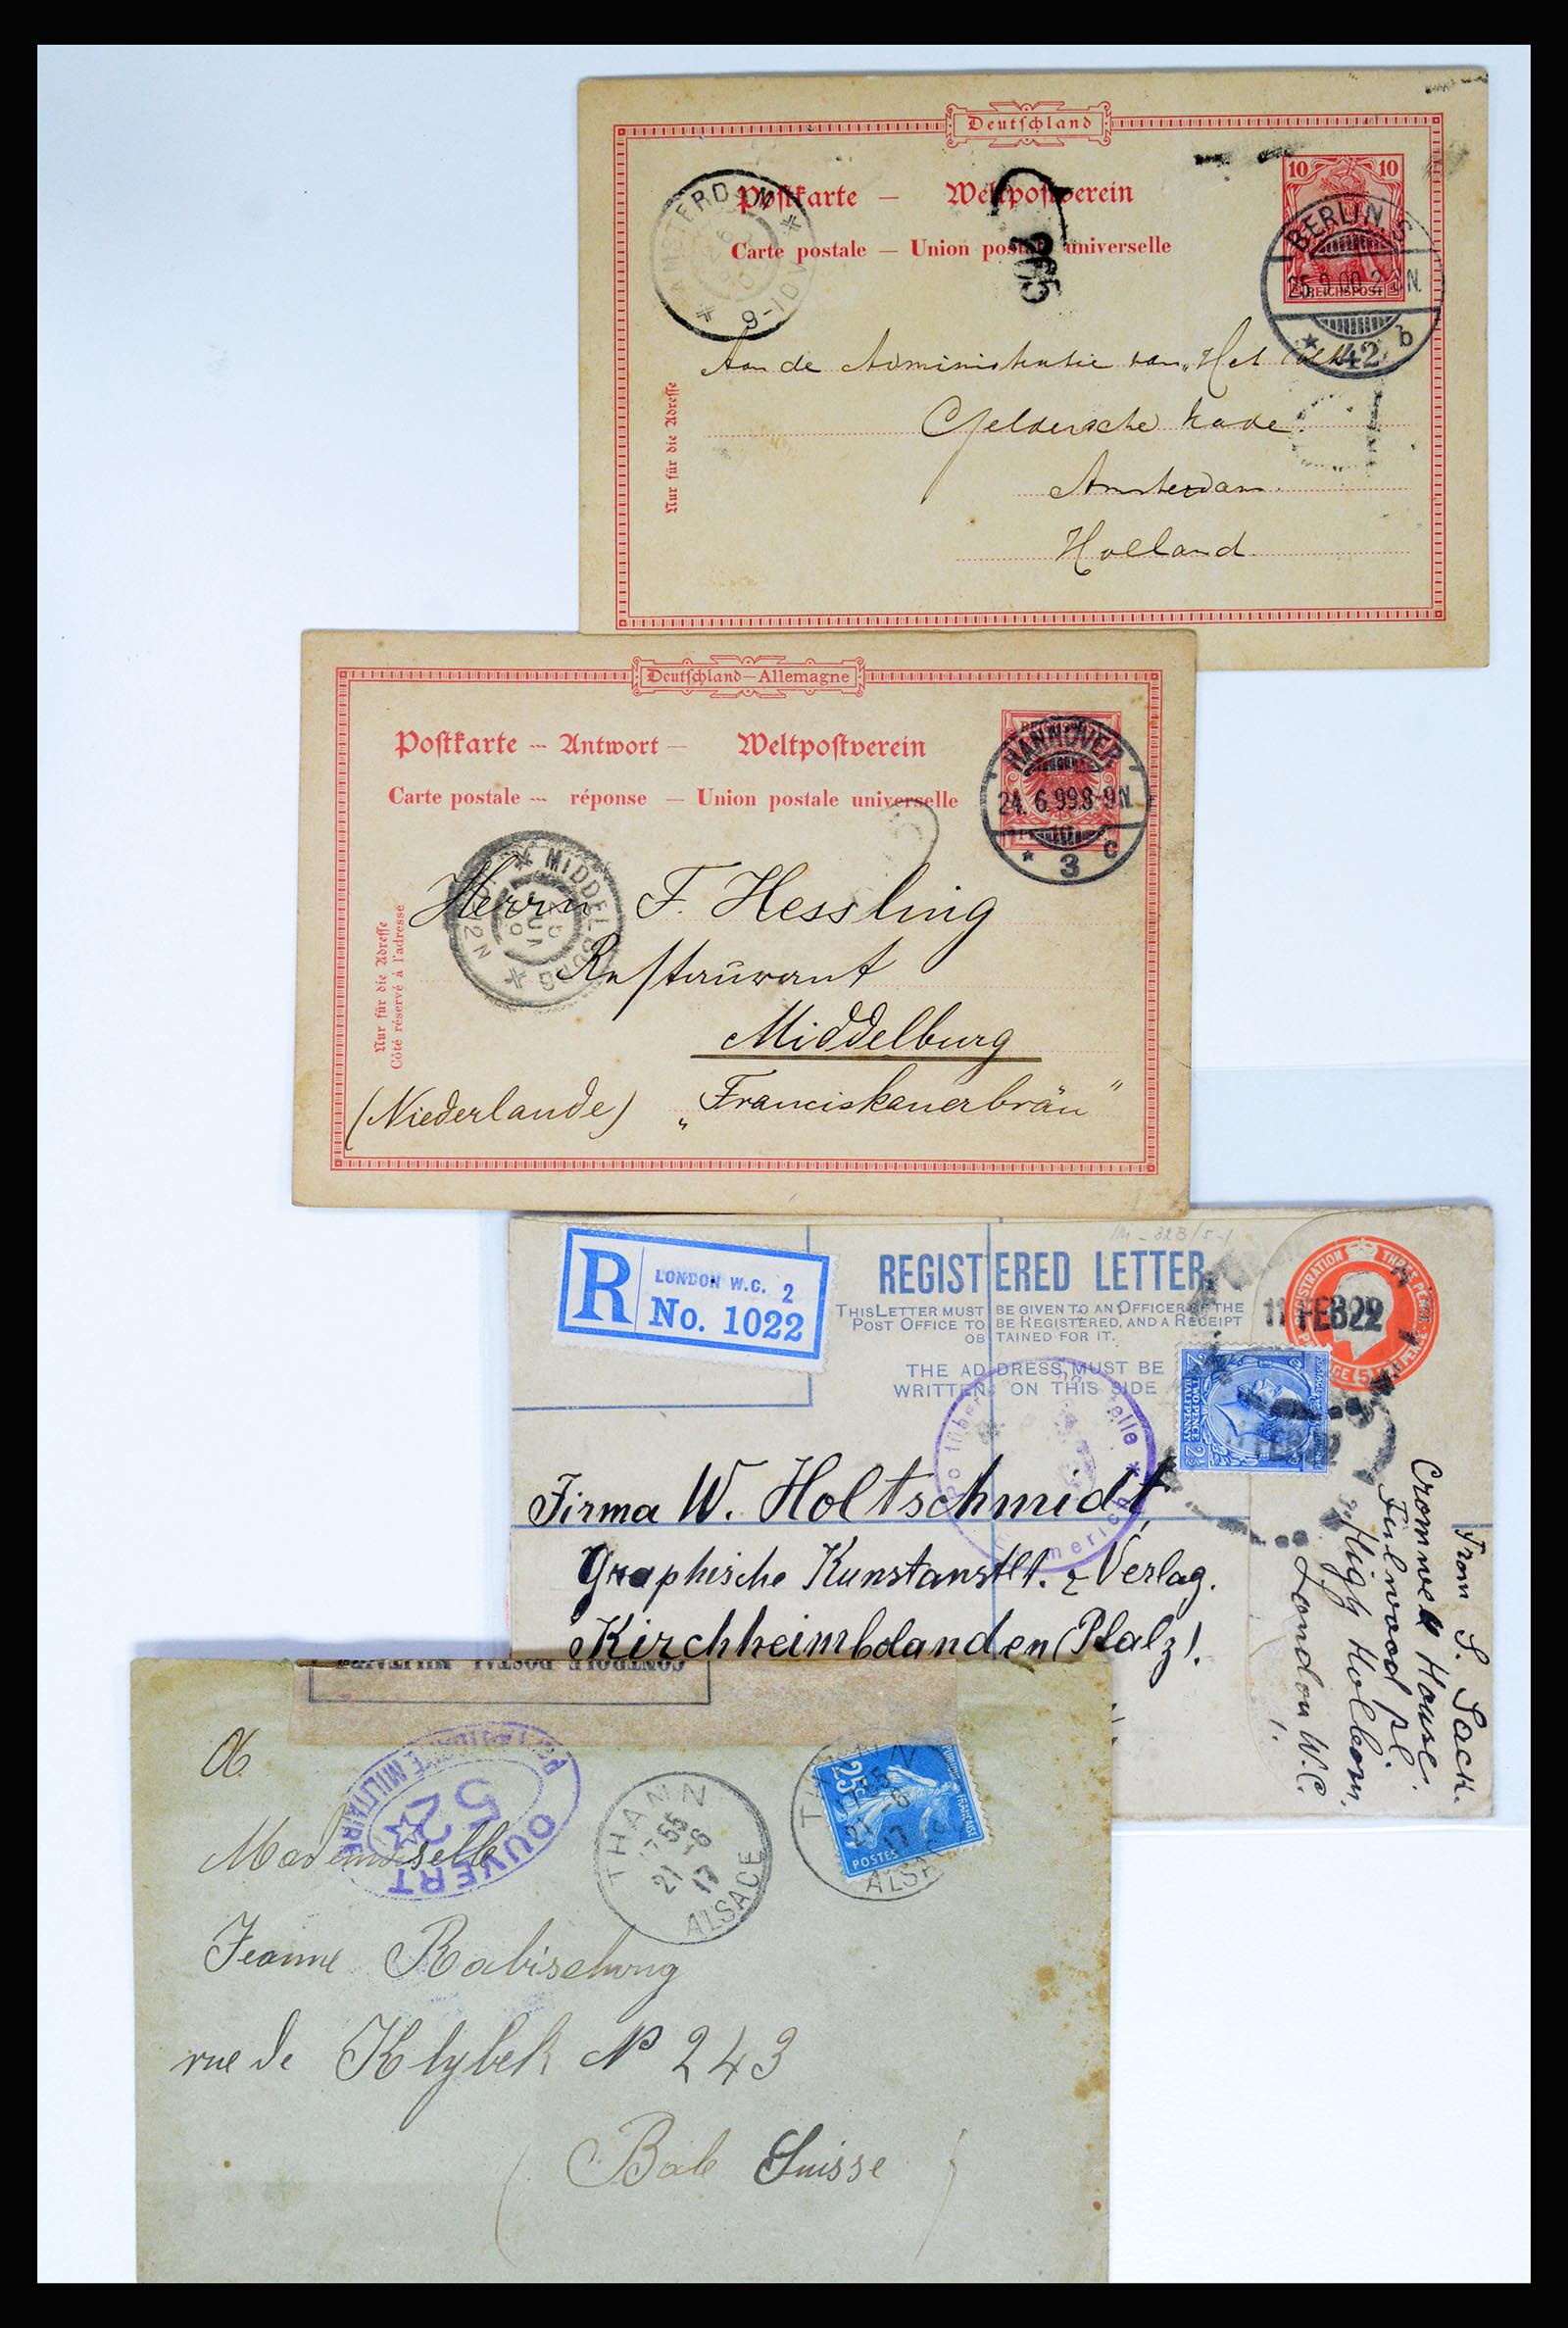 Deutschland
Postkarte — Weltpostverein
Carte postale — Union postale universelle
10 10
REICHSPOST
BERLIN S
25.9.00.2-3N.
* 42 b
AMSTERDAM
9-10V
265
Aan de Administratie van „Het Volk"
Geldersche kade.
Amsterdam.
Holland
Nur für die Adresse
Deutschland—Allemagne
Postkarte — Antwort — Weltpostverein
Carte postale — réponse — Union postale universelle
REICHSPOST
HANNOVER
24. 6. 99.8-9N.
* 3 c
MIDDELBURG
12N
Herrn F. Hessling
Restaurant
Middelburg
(Niederlande) „Franciskanerbräu"
Nur für die Adresse
Côté réservé à l'adresse
R LONDON W.C. 2
No. 1022
REGISTERED LETTER.
THIS LETTER MUST BE GIVEN TO AN OFFICER OF THE
POST OFFICE TO BE REGISTERED, AND A RECEIPT
OBTAINED FOR IT.
THE ADDRESS MUST BE
WRITTEN ON THIS SIDE
11 FEB 22
TWO PENCE
HALFPENNY
Firma W. Holtschmidt,
Graphische Kunstanstlt. & Verlag.
Kirchheimbolanden (Pfalz)!
From S. Sack.
Cromwell House.
Fulwood pl.
High Holborn.
London W.C.
CONTROLE POSTAL MILITAIRE
OUVERT
PAR L'AUTORITÉ MILITAIRE
52
THANN
17 55
21 -6
17
ALSACE
25c
POSTES
THANN
21 -6
17
ALSACE
a
Mademoiselle
Jeanne Rabischung
rue de Klybek No 243
(Bale Suisse)